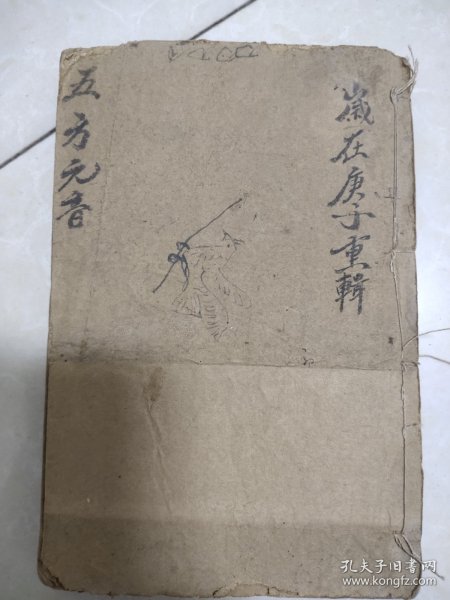 歲在庚子重輯
五方元音
孔夫子旧书网
www.kongfz.com